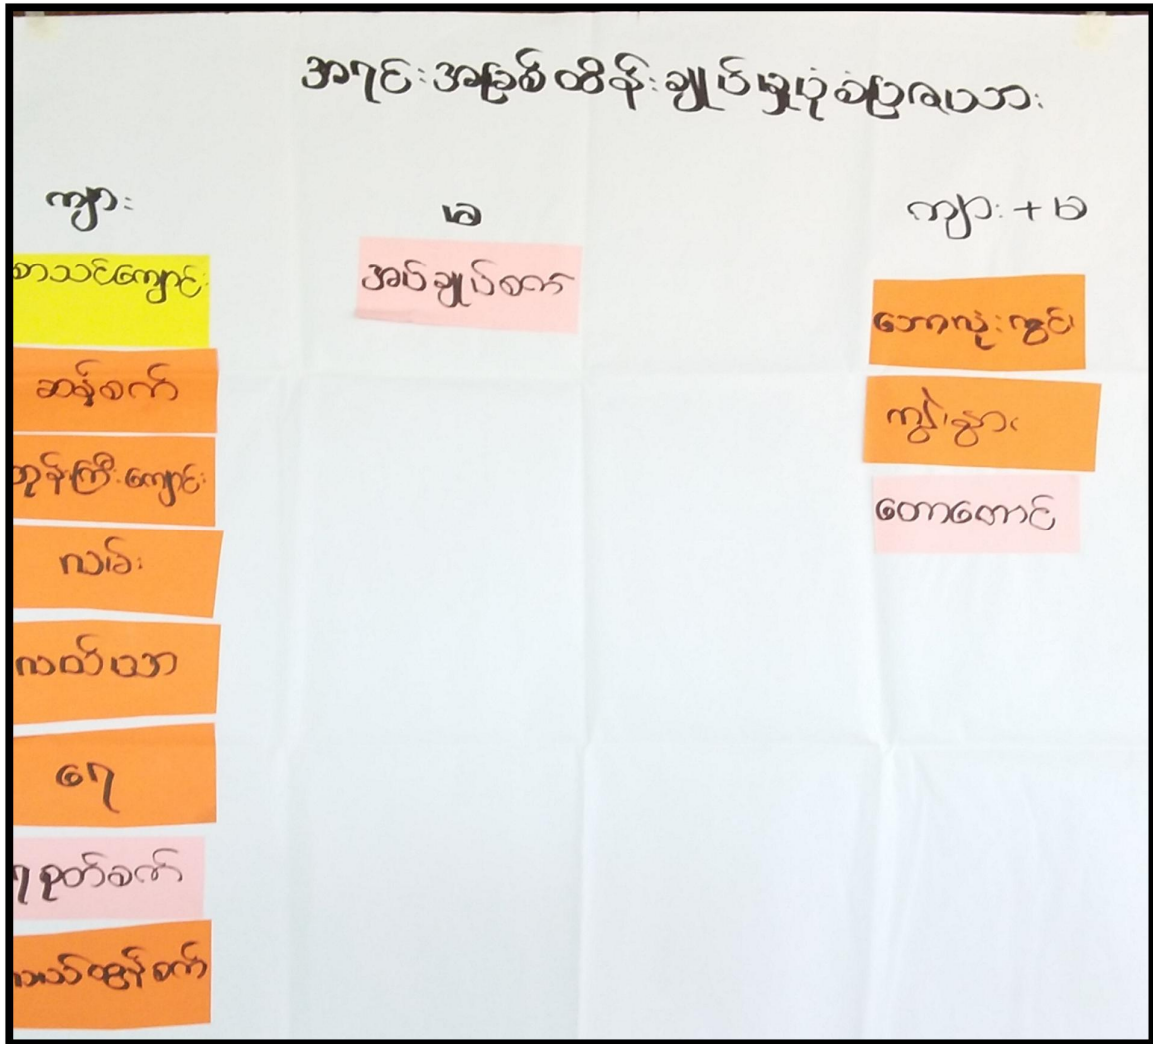 အရင်းအမြစ်ထိန်းချုပ်မှုပုံစံပြဇယား
ကျား
မ
ကျား + မ
စာသင်ကျောင်း
ဆန်စက်
ဘုန်းကြီးကျောင်း
လမ်း
လယ်ယာ
ရေ
ရေစုတ်စက်
လယ်ထွန်စက်
အပ်ချုပ်စက်
ဘောလုံးကွင်း
ကျွဲ၊နွား
တောတောင်